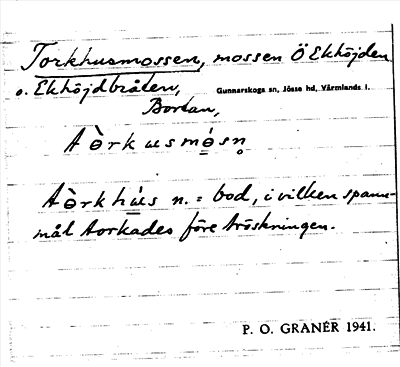 Torkhusmossen, mossen Ö Ekhöjden
o. Ekhöjdbråten, Gunnarskogs sn, Jösse hd, Värmlands l.
Bortan,
tɵ̀rkusmɵ́sn̥
tɵ̀rkhús n. = bod, i vilken spann-
mål torkades före tröskningen.
P. O. GRANÉR 1941.